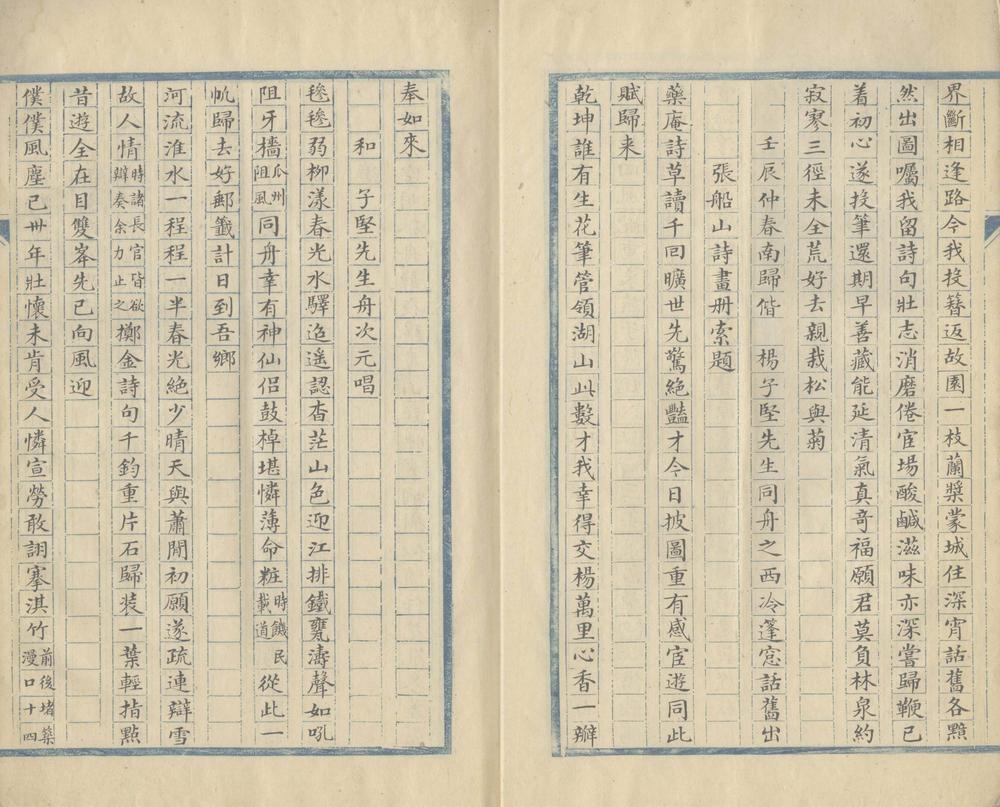 界斷相逢路今我投簪返故園一枝蘭槳蒙城住深宵話舊各黯
然出圖囑我留詩句壯志消磨倦宦場酸鹹滋味亦深嘗歸鞭已
着初心遂投筆還期早善藏能延清氣真奇福願君莫負林泉約
寂寥三徑未全荒好去親栽松與菊
壬辰仲春南歸偕　楊子堅先生同舟之西泠蓬窓話舊出
張船山詩畫册索題
藥庵詩草讀千回曠世先驚絕豔才今日披圖重有感宦遊同此
賦歸来
乾坤誰有生花筆管領湖山此數才我幸得交楊萬里心香一瓣
奉如來
和　子堅先生舟次元唱
毿毿弱柳漾春光水驛迢遥認杳茫山色迎江排鐵甕濤聲如吼
阻牙檣瓜州阻風同舟幸有神仙侶鼓棹堪憐薄命粧時饑民載道從此一
帆歸去好郵籤計日到吾鄉
河流淮水一程程一半春光絶少晴天與蕭閒初願遂疏連辯雪
故人情時諸長官皆欲辦奏余力止之擲金詩句千鈞重片石歸装一葉輕指點
昔遊全在目雙峯先已向風迎
僕僕風塵已卅年壯懷未肯受人憐宣勞敢詡搴淇竹前後堵築漫口十四